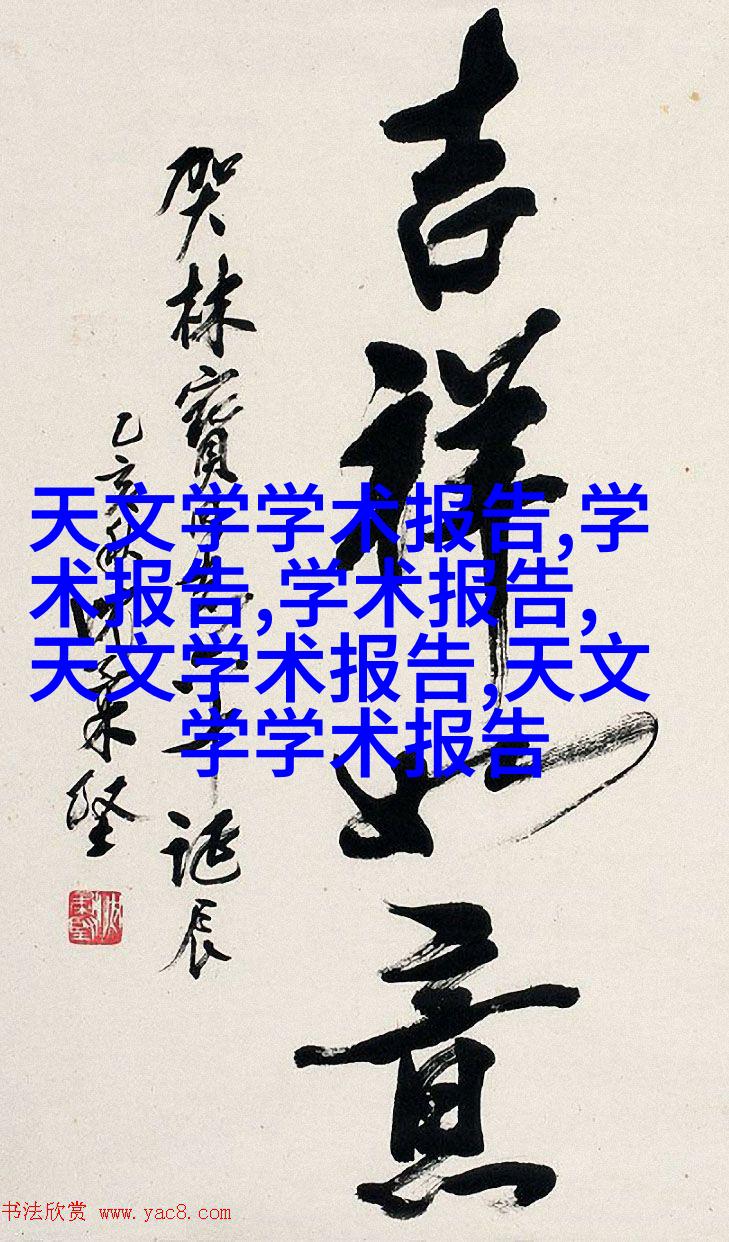 吉祥如意
贺林宝
诞辰
乙亥秋
天文学学术报告,学
术报告,学术报告,
天文学术报告,天文
学学术报告
书法欣赏 www.yac8.com